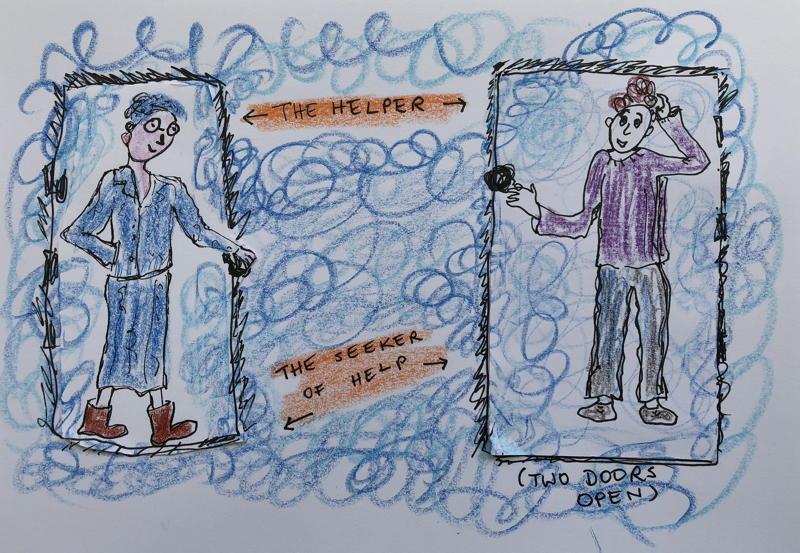 THE HELPER
THE SEEKER
OF HELP
(TWO DOORS
OPEN)